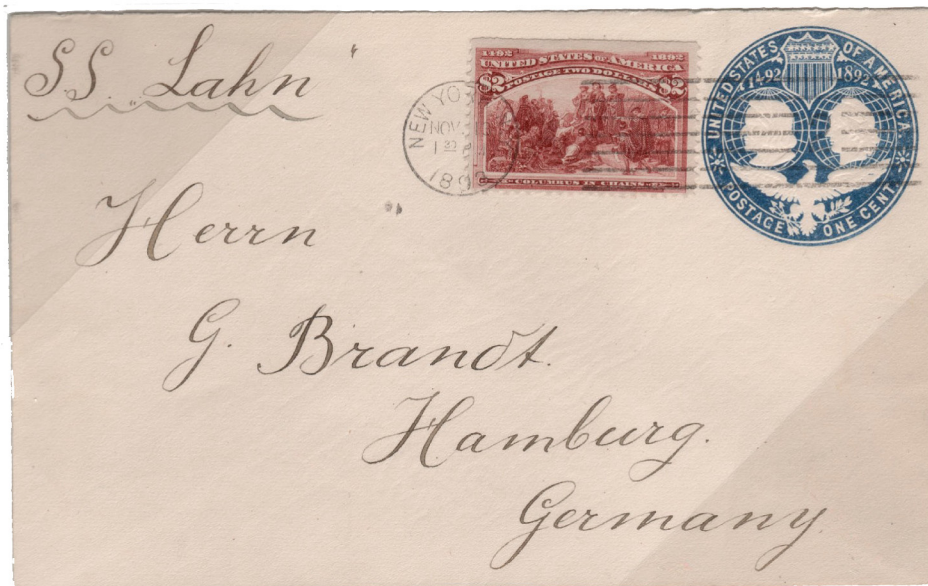 SS. "Lahn"
1492 1892
UNITED STATES OF AMERICA
POSTAGE TWO DOLLARS
$2 $2
COLUMBUS IN CHAINS
NEW YO
NOV
1893
UNITED STATES OF AMERICA
1492 1892
POSTAGE ONE CENT
Herrn
G. Brandt.
Hamburg.
Germany